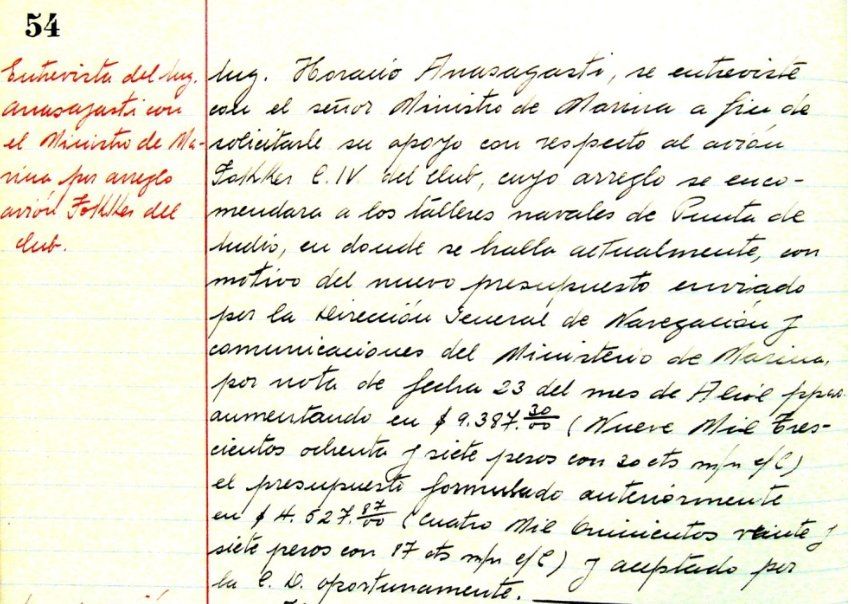 54
Entrevista del Ing.
Anasagasti con
el Ministro de Ma-
rina por arreglo
avión Fokker del
club.
Ing. Horacio Anasagasti, se entreviste
con el señor Ministro de Marina a fin de
solicitarle su apoyo con respecto al avión
Fokker C.IV del club, cuyo arreglo se enco-
mendara a los talleres navales de Punta de
Indio, en donde se halla actualmente, con
motivo del nuevo presupuesto enviado
por la Dirección General de Navegación y
comunicaciones del Ministerio de Marina,
por nota de fecha 23 del mes de Abril ppdo.
aumentando en $ 9.387.30/00 (Nueve Mil Tres-
cientos ochenta y siete pesos con 30 cts m/n c/l)
el presupuesto formulado anteriormente
en $ 4.527.87/00 (Cuatro Mil Quinientos veinte y
siete pesos con 87 cts m/n c/l) y aceptado por
la C. D. oportunamente.